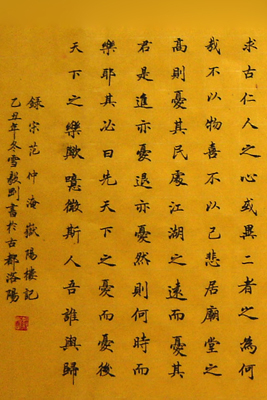 求古仁人之心或異二者之為何
哉不以物喜不以己悲居廟堂之
高則憂其民處江湖之遠而憂其
君是進亦憂退亦憂然則何時而
樂耶其必曰先天下之憂而憂後
天下之樂歟噫微斯人吾誰與歸
錄宋范仲淹嶽陽樓記
己丑年冬雪毅刚書於古都洛陽